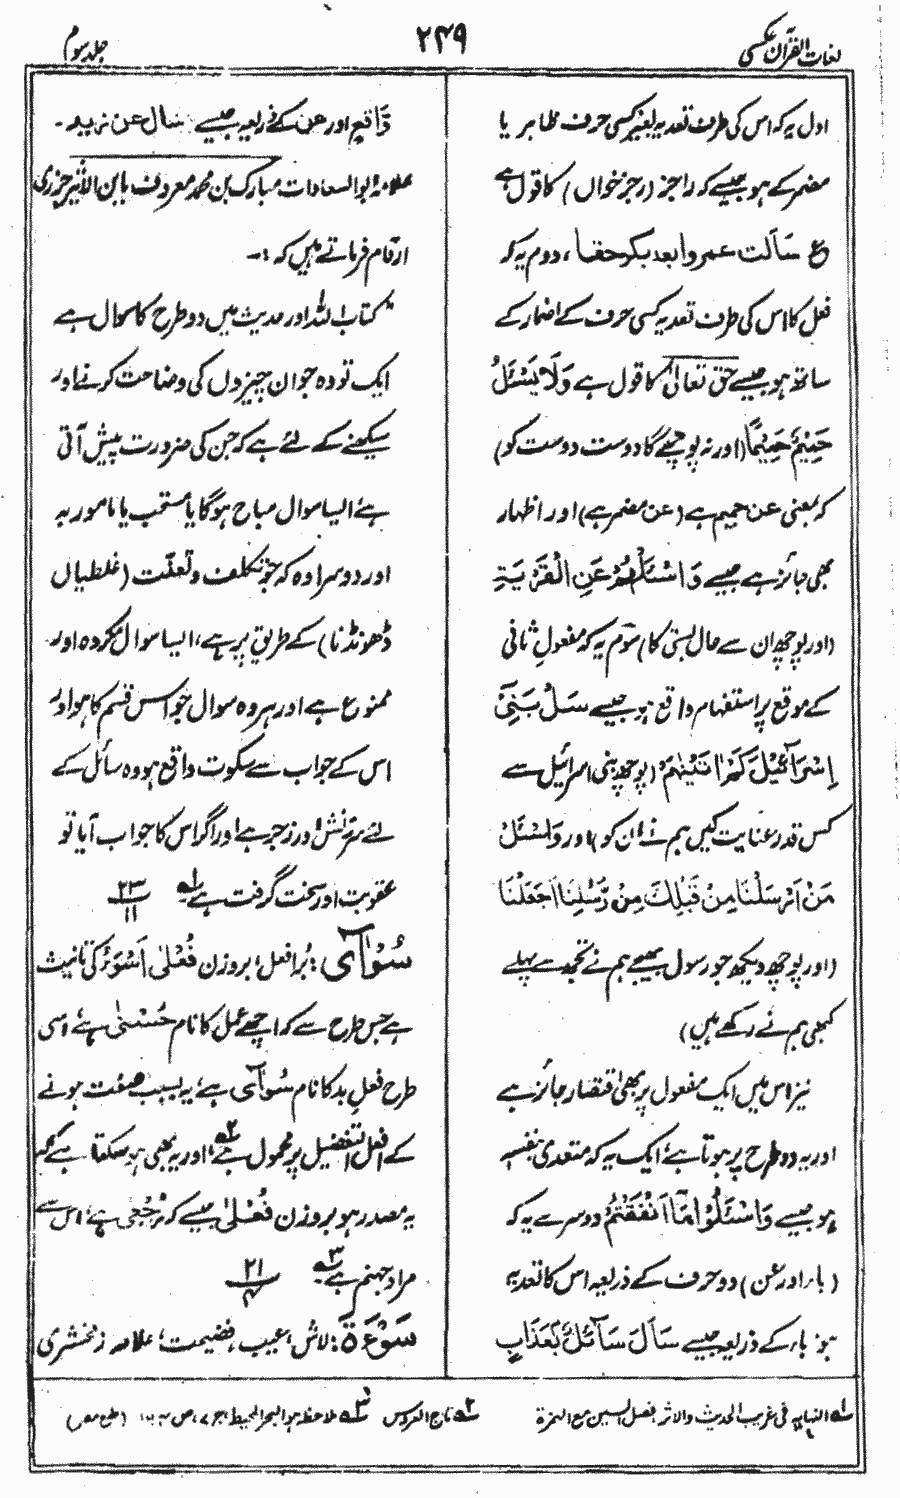 لغات القرآن عکسی
۲۴۹
جلد سوم
اول یہ کہ اس کی طرف تعدیہ بغیر کسی حرف ظاہر یا
مضمر کے ہو جیسے کہ راجز (رجز خواں) کا قول ہے
ع سَاَلت عمروا بعد بکر حقا، دوم یہ کہ
فعل کا اس کی طرف تعدیہ کسی حرف کے اضمار کے
ساتھ ہو جیسے حق تعالیٰ کا قول ہے وَلَا یَسْئَلُ
حَمِیْمٌ حَمِیْمًا (اور نہ پوچھے گا دوست دوست کو)
کہ بمعنی عن حمیم ہے (عن مضمر ہے) اور اظہار
بھی جائز ہے جیسے وَاسْئَلْهُمْ عَنِ الْقَرْیَةِ
(اور پوچھ ان سے حال بستی کا) سوم یہ کہ مفعولِ ثانی
کے موقع پر استفہام واقع ہو جیسے سَلْ بَنِیْٓ
اِسْرَآئِیْلَ کَمْ اٰتَیْنٰهُمْ (پوچھ بنی اسرائیل سے
کس قدر عنایت کیں ہم نے ان کو) اور وَاسْئَلْ
مَنْ اَرْسَلْنَا مِنْ قَبْلِكَ مِنْ رُّسُلِنَا اَجَعَلْنَا
(اور پوچھ دیکھ جو رسول بھیجے ہم نے تجھ سے پہلے
کبھی ہم نے رکھے ہیں)
نیز اس میں ایک مفعول پر بھی اقتصار جائز ہے
اور یہ دو طرح پر ہوتا ہے، ایک یہ کہ متعدی بنفسہ
ہو جیسے وَاسْئَلُوْا مَآ اَنْفَقْتُمْ دوسرے یہ کہ
(باء اور عن) دو حرف کے ذریعہ اس کا تعدیہ
ہو باء کے ذریعہ جیسے سَاَلَ سَآئِلٌ بِعَذَابٍ
وَّاقِعٍ اور عن کے ذریعہ جیسے سال عن زید۔
علامہ ابو السعادات مبارک بن محمد معروف بابن الأثیر جزری
ارقام فرماتے ہیں کہ :۔
"کتاب اللہ اور حدیث میں دو طرح کا سوال ہے
ایک تو وہ جو ان چیزوں کی وضاحت کرنے اور
سیکھنے کے لئے ہے کہ جن کی ضرورت پیش آتی
ہے، ایسا سوال مباح ہوگا یا مستحب یا مامور بہ
اور دوسرا وہ کہ جو تکلف و تعنّت (غلطیاں
ڈھونڈنا) کے طریق پر ہے، ایسا سوال مکروہ اور
ممنوع ہے اور ہر وہ سوال جو اس قسم کا ہو اور
اس کے جواب سے سکوت واقع ہو وہ سائل کے
لئے سرزنش اور زجر ہے اور اگر اس کا جواب آیا تو
عقوبت اور سخت گرفت ہے۔ لہ ۲۳/۱۱
سُوْآٰی : بُرا فعل، بروزن فُعْلٰی اَسْوَءُ کی تانیث
ہے جس طرح سے کہ اچھے عمل کا نام حُسْنٰی ہے، اسی
طرح فعلِ بد کا نام سُوآٰی ہے، یہ بسبب صفت ہونے
کے افعل التفضیل پر محمول ہے ۲ہ، اور یہ بھی ہو سکتا ہے کہ
یہ مصدر ہو بروزن فُعْلٰی جیسے کہ رُجْعٰی ہے، اس سے
مراد جہنم ہے ۳ہ ۲۱/۴
سَوْءَةَ : لاش، عیب، فضیحت، علامہ زمخشری
لہ النہایہ فی غریب الحدیث والاثر بفصل السین مع الہمزة ۲ہ تاج العروس ۳ہ ملاحظہ ہو البحر المحیط، ج ۷، ص ۱۶۴ (طبع مصر)